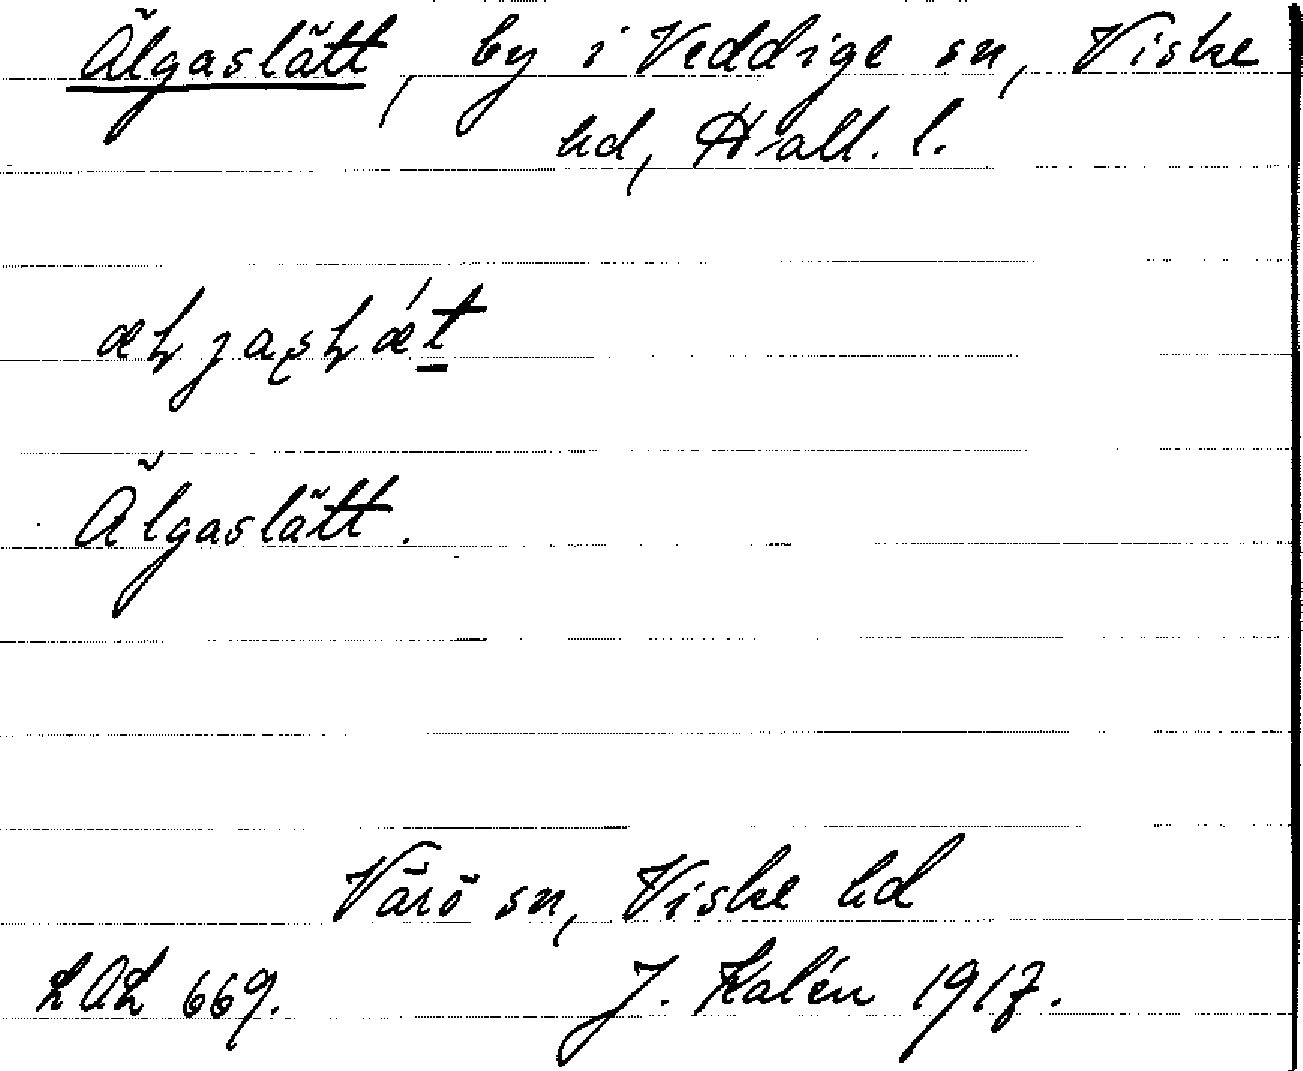 Älgaslätt, by i Veddige sn, Viske
hd, Hall. l.
Älgaslätt.
Värö sn, Viske hd
LAL 669. J. Kalén 1917.